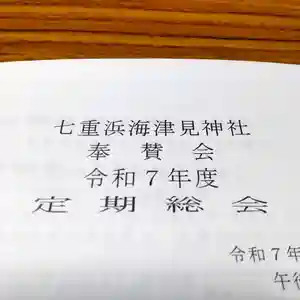 七重浜海津見神社
奉賛会
令和７年度
定期総会
令和７年
午後